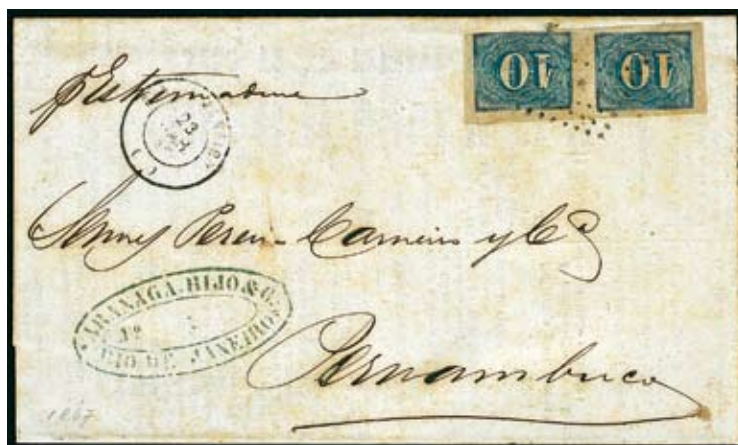 10 10
p Estremadure
23
Pereira Carneiro y Ca
ARANAGA HIJO & C.
RIO DE JANEIRO
Pernambuco
1867